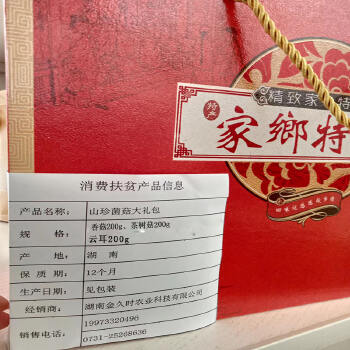 精致家
特产
家鄉特
消费扶贫产品信息
产品名称: 山珍菌菇大礼包
规 格: 香菇200g、茶树菇200g
云耳200g
产 地: 湖 南
保 质 期: 12个月
生产日期: 见包装
经销商: 湖南金久时农业科技有限公司
19973320496
销售电话: 0731-25268636